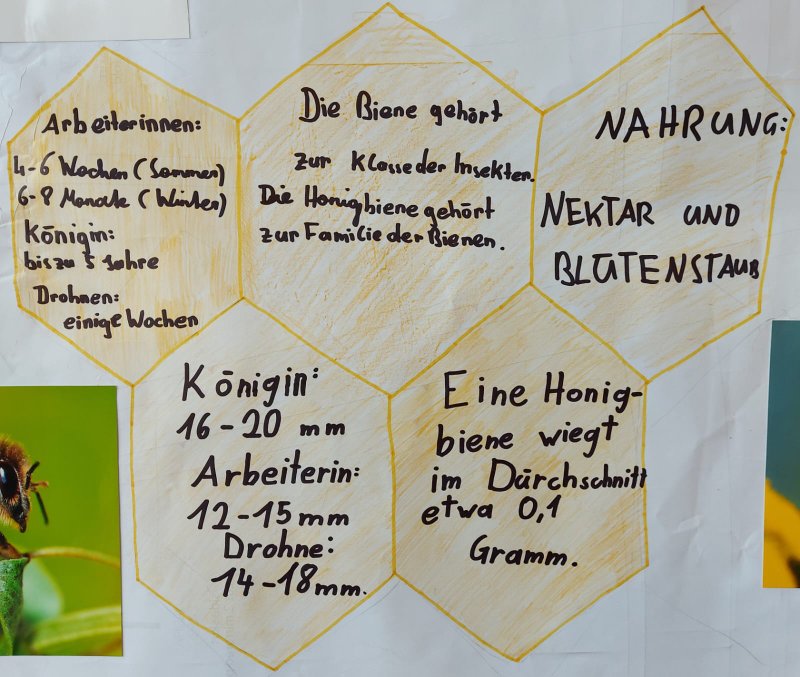 Arbeiterinnen:
4-6 Wochen (Sommer)
6-8 Monate (Winter)
Königin:
bis zu 5 Jahre
Drohnen:
einige Wochen
Die Biene gehört
zur Klasse der Insekten.
Die Honigbiene gehört
zur Familie der Bienen.
NAHRUNG:
NEKTAR UND
BLÜTENSTAUB
Königin:
16-20 mm
Arbeiterin:
12-15 mm
Drohne:
14-18 mm.
Eine Honig-
biene wiegt
im Dūrchschnitt
etwa 0,1
Gramm.